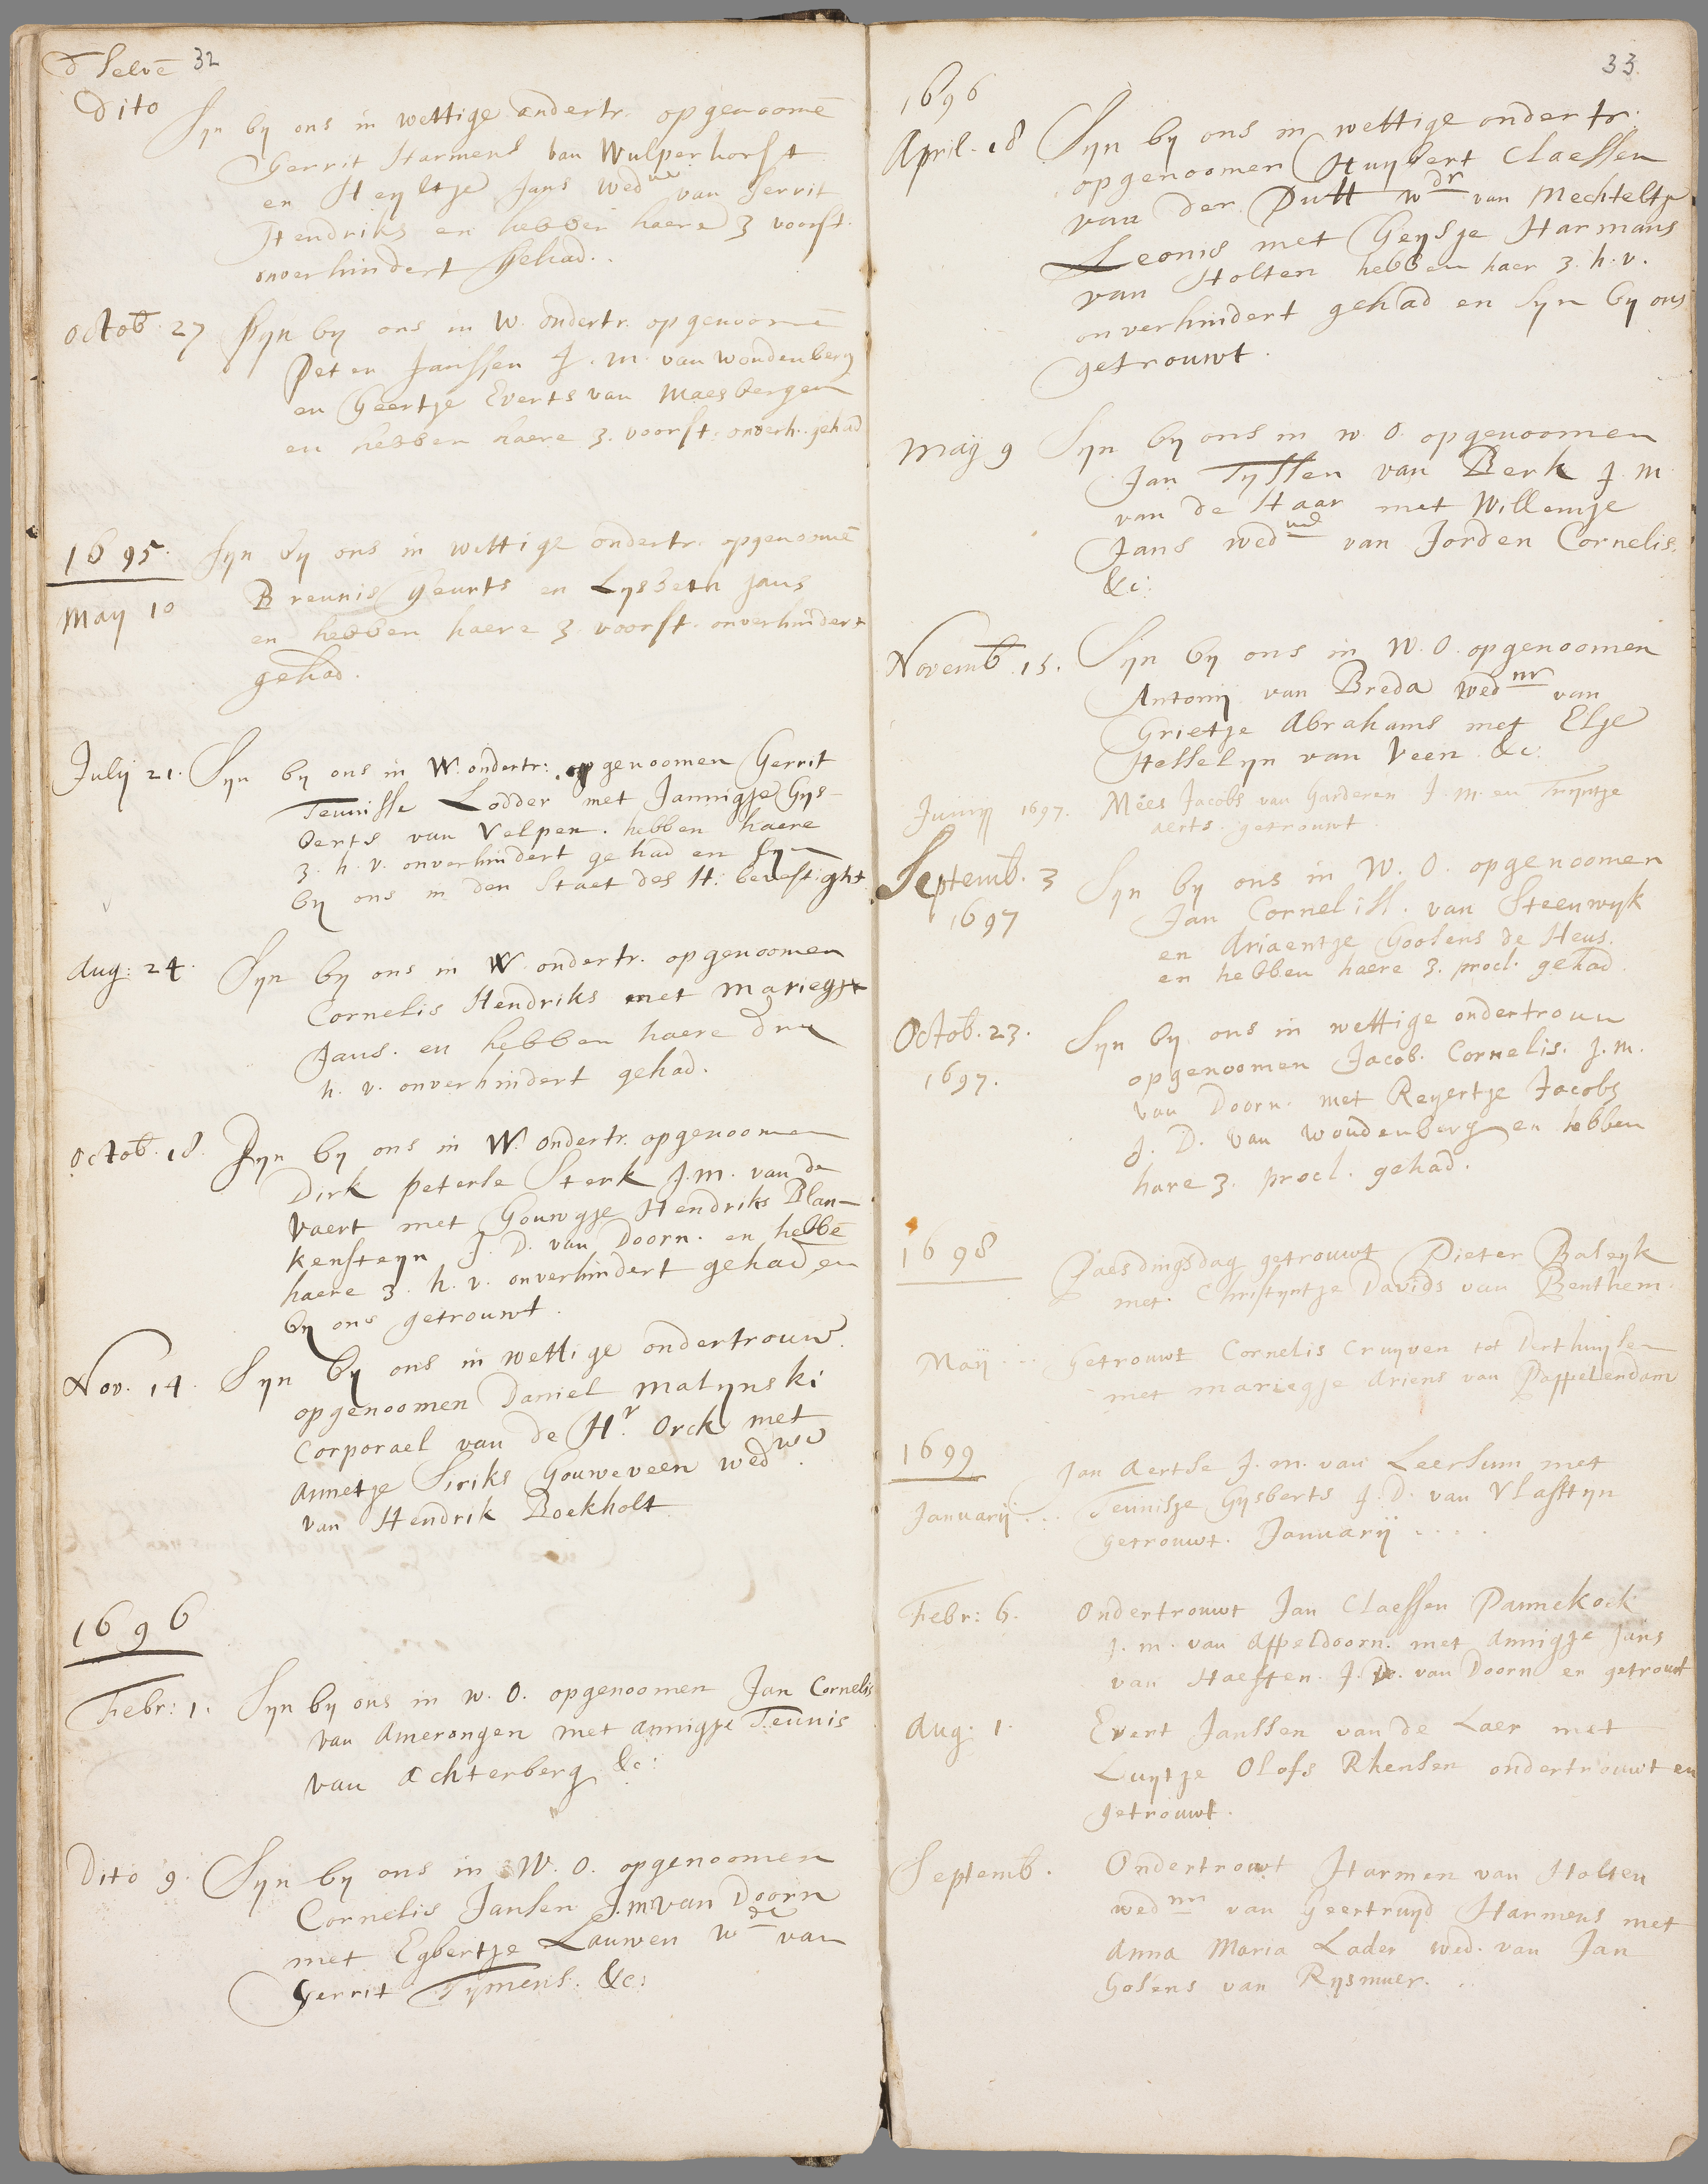 d'selve 32
Dito Syn by ons in wettige ondertr. opgenoomē
Gerrit Harmens van Wulperhorst
en Heyltje Jans wedwe van Gerrit
Hendriks en hebben haere 3 voorst.
onverhindert gehad.
Octob. 27 Syn by ons in W. ondertr. opgenoomē
Peter Janssen J. m. van Woudenberg
en Geertje Everts van Maesbergen
en hebben haere 3. voorst. onverh. gehad
1695. Syn by ons in wettige ondertr. opgenoomē
May 10 Breunis Geurts en Lysbeth Jans
en hebben haere 3 voorst. onverhindert
gehad.
July 21. Syn by ons in W. ondertr: opgenoomen Gerrit
Teunisse Lodder met Jannigje Gys-
berts van Velpen. hebben haere
3. h. v. onverhindert gehad en syn
by ons in den Staet des H. bevestight
Aug: 24. Syn by ons in W ondertr. opgenoomen
Cornelis Hendriks met Mariegje
Jans. en hebben haere dry
h. v. onverhindert gehad.
Octob. 18. Syn by ons in W. ondertr. opgenoomen
Dirk peterse Sterk J.m. van de
Vaert met Gouwgje Hendriks Blan-
kensteyn J. D. van Doorn. en hebbē
haere 3. h. v. onverhindert gehad en
by ons getrouwt.
Nov. 14. Syn by ons in wettige ondertrouw
opgenoomen Daniel Malynski
Corporael van de Hr. Orck met
Annetje Siriks Gouweveen wedwe.
van Hendrik Boekholt
1696
Febr: 1. Syn by ons in w. O. opgenoomen Jan Cornelis
van Amerongen met Annigje Teunis
van Achterberg &c:
Dito 9. Syn by ons in W. O. opgenoomen
Cornelis Jansen J.m van Doorn
met Egbertje Lauwen wde van
Gerrit Tymens. &c:
33.
1696
April. 18 Syn by ons in wettige ondertr.
opgenoomen Huybert Claessen
van der Putt wdr van Mechteltje
Leonis met Geysje Harmans
van Holten hebben haer 3. h. v.
onverhindert gehad en syn by ons
getrouwt.
Maij 9 Syn by ons in w. O. opgenoomen
Jan Tyssen van Berk J. m
van de Haar met Willemje
Jans wedwe van Jorden Cornelis.
&c:
Novemb. 15. Syn by ons in W. O. opgenoomen
Antonij van Breda wednr van
Grietje Abrahams met Elje
Hesselyn van Veen &c:
Junij 1697. Mees Jacobs van Garderen J. m. en Tryntje
Aerts. getrouwt.
Septemb. 3 Syn by ons in W. O. opgenoomen
1697 Jan Corneliss. van Steenwyk
en Ariaentje Goosens de Heus.
en hebben haere 3. procl. gehad.
Octob. 23. Syn by ons in wettige ondertrouw
1697. opgenoomen Jacob. Cornelis. J. m.
van Doorn. met Reyertje Jacobs
J. D. van Woudenberg en hebben
hare 3. procl. gehad.
1698 Paesdingsdag getrouwt Pieter Baleyk
met. Christyntje Davids van Benthem.
Maij ... Getrouwt Cornelis Cruyven tot Derthuysen
met Mariegje Ariens van Pappelendam
1699 Jan Aertse J. m. van Leersum met
Januarij ... Teunisje Gysberts J. D. van Vlastuyn
getrouwt. Januarij ....
Febr: 6. Ondertrouwt Jan Claessen Pannekoek
J. m. van Appeldoorn. met Annigje Jans
van Haeften. J. D. van Doorn en getrouwt
Aug: 1. Evert Janssen van de Laer met
Luytje Olofs Rhensen ondertrouwt en
getrouwt.
Septemb. Ondertrouwt Harmen van Holten
wednr van Geertruyd Harmens met
Anna Maria Lader wed. van Jan
Gosens van Rysmuer.